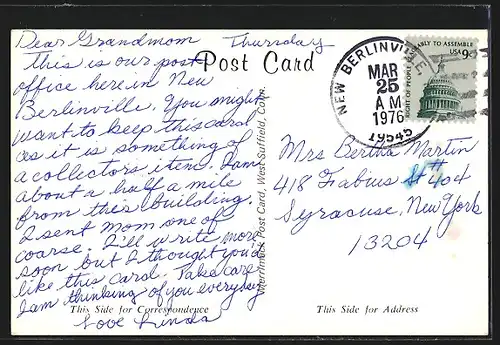 Dear Grandmom Thursday
This is our post
office here in New
Berlinville. You might
want to keep this card
as it is something of
a collectors item. I am
about a half a mile
from this building.
I sent mom one of
coarse. I'll write more
soon but I thought you'd
like this card. Take care
I am thinking of you everyday
Love Linda
This Side for Correspondence
Post Card
Merrimack Post Card, West Suffield, Conn.
NEW BERLINVILLE
MAR
25
AM
1976
19545
BLY TO ASSEMBLE
USA 9c
RIGHT OF PEOPLE
Mrs Bertha Martin
418 Fabius St #404
Syracuse, New York
13204
This Side for Address